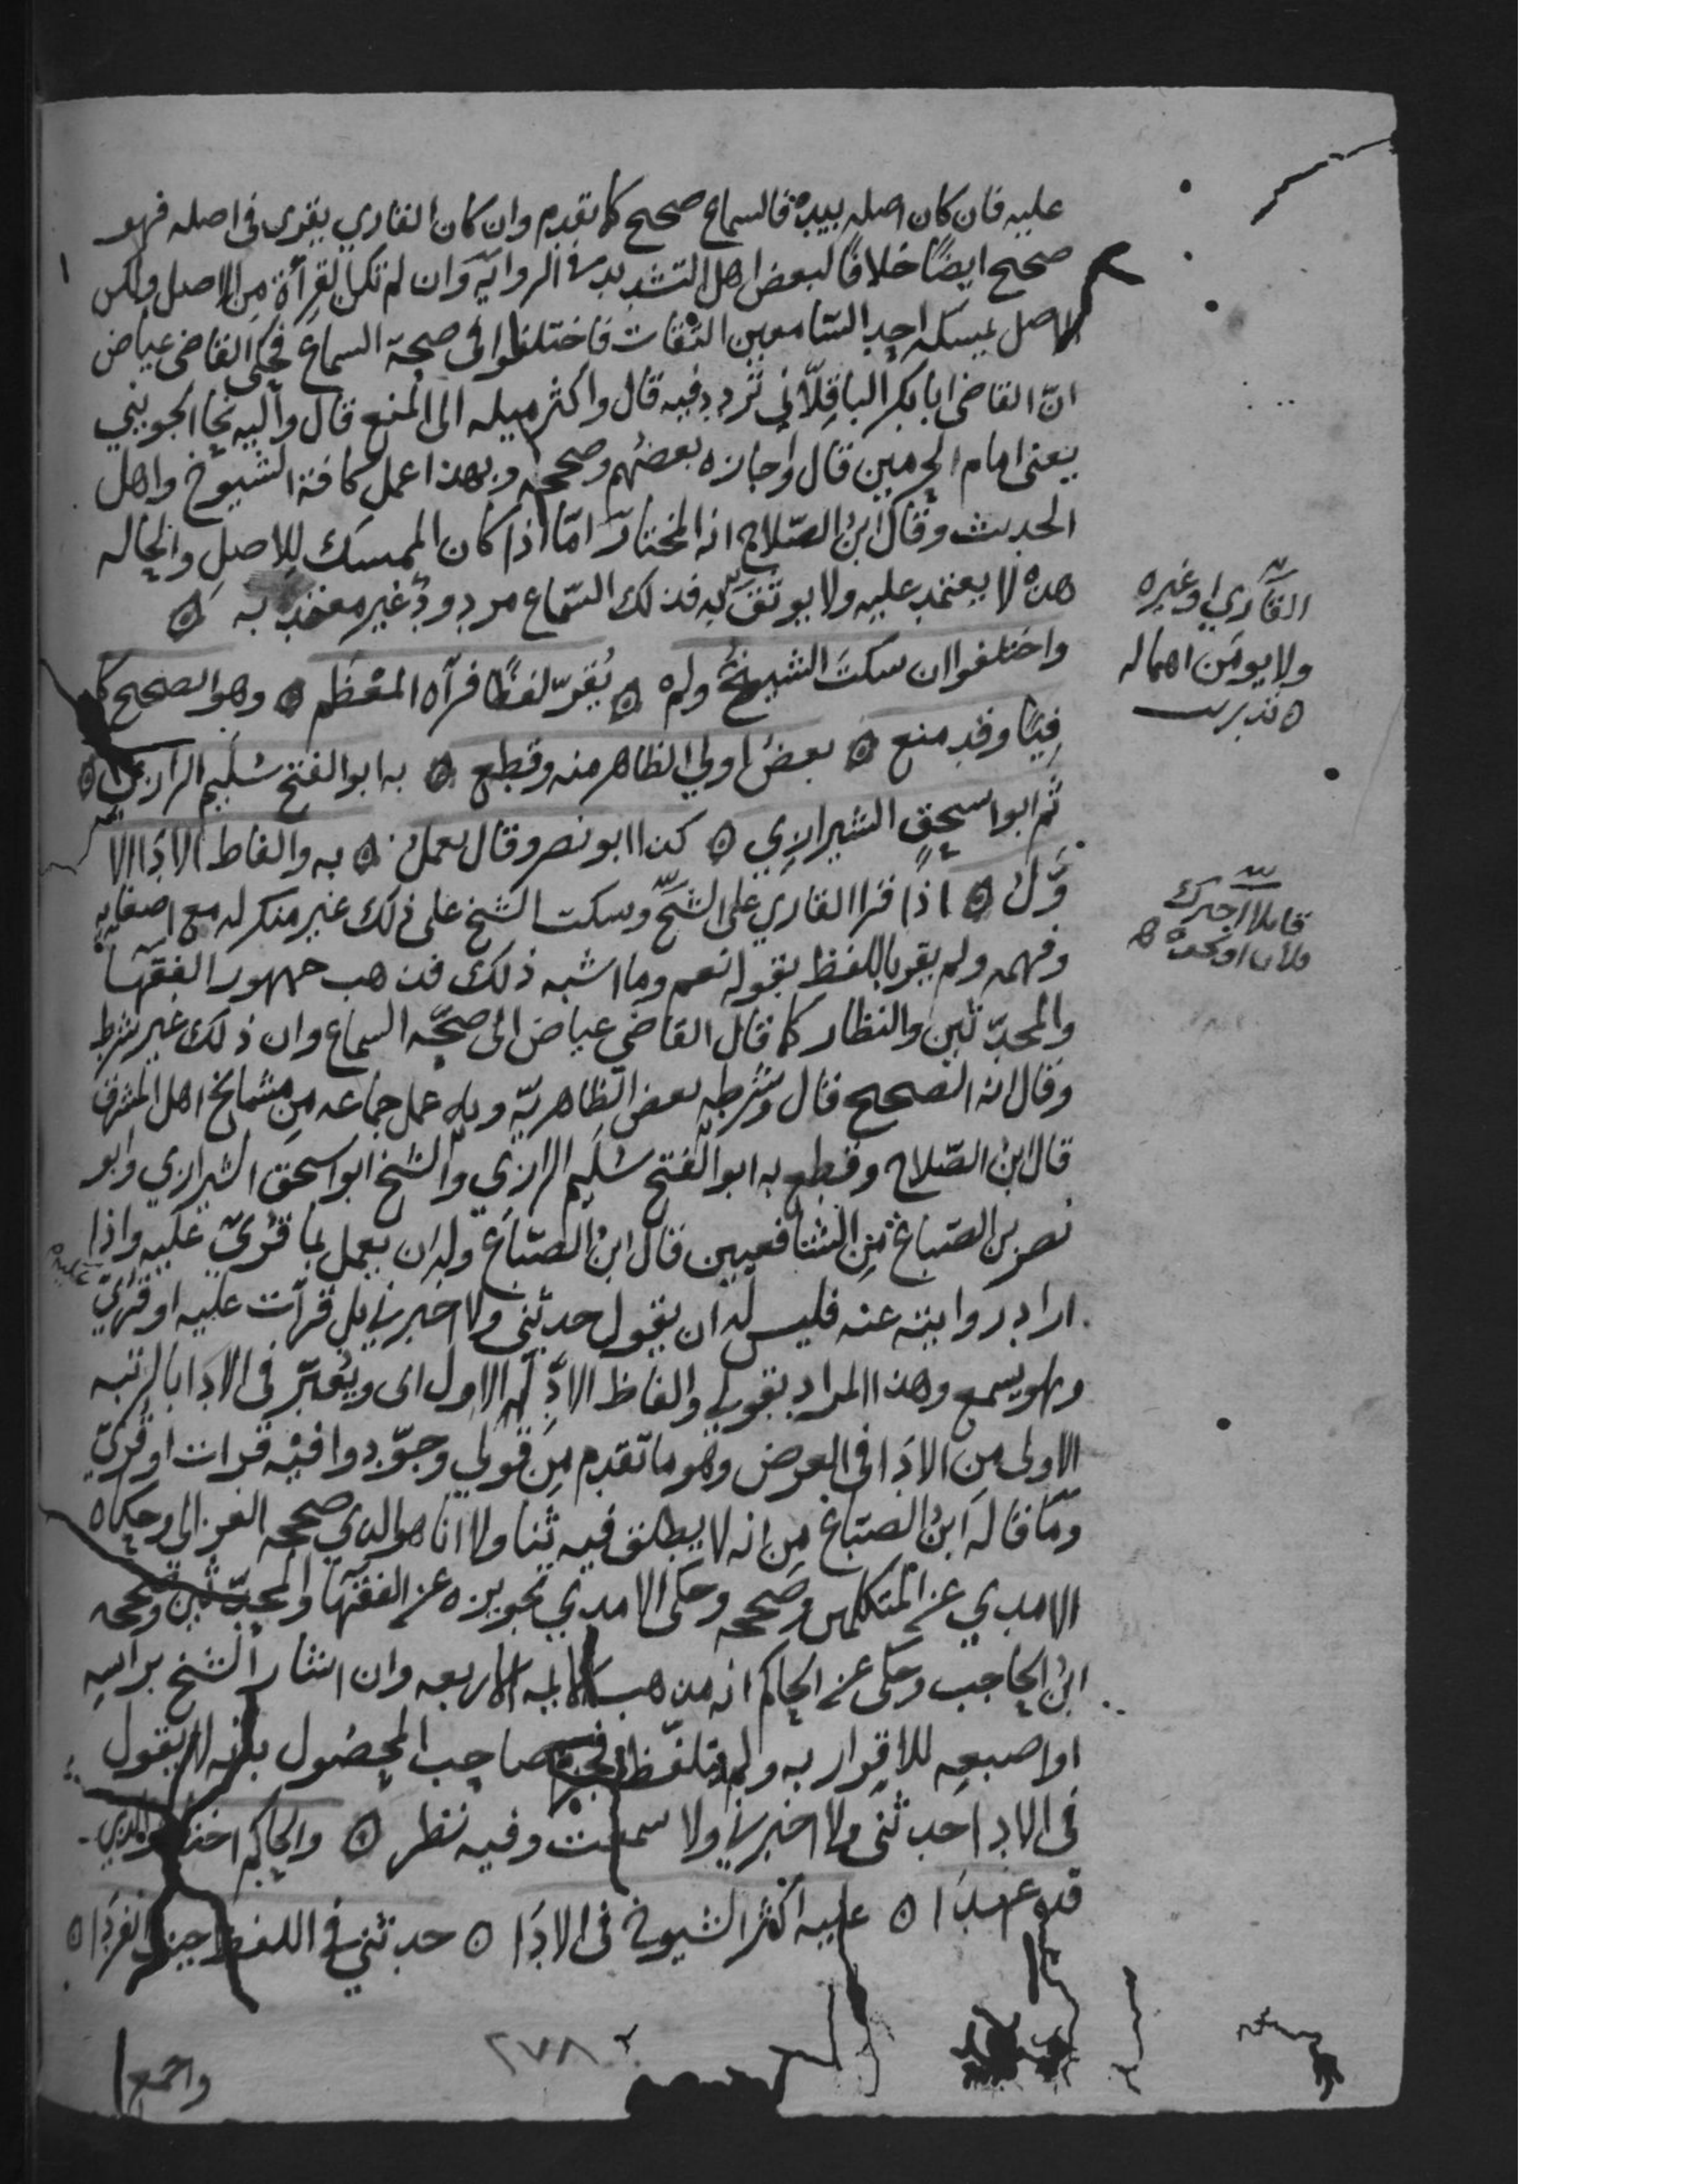 عليه فان كان اصله بيده فالسماع صحيح كما تقدم وان كان القاري يقرى في اصله فهو
صحيح ايضًا خلافًا لبعض اهل التشديد في الروايه وان لم تكن القرأة من الاصل ولكن
الاصل يمسكه احد السامعين الثقات فاختلفوا في صحة السماع فحكى القاضى عياض
انّ القاضى ابا بكر الباقلّاني تردد فيه قال واكثر ميله الى المنع قال واليه نحا الجويني
يعنى امام الحرمين قال واجازه بعضهم وصححه وبهذا عمل كافة الشيوخ واهل
الحديث وقال ابن الصّلاح انه المختار امّا اذا كان الممسك للاصل والحاله
هذه لا يعتمد عليه ولا يوثق به فذلك السّماع مردود غير معتد به ه
واختلفوا ان سكت الشيخ ولم ه يقرّ لفظًا فرآه المعْظَم ه وهو الصحيح كا
فيًا وقد منع ه بعض اولي الظاهر منه وقطع ه به ابو الفتح سُلَيم الرازي ه
ثم ابو اسحق الشيرازي ه كذا ابو نصر وقال يعمل ه به والفاظ الادَا الا
وّل ه اذا قرا القاري على الشيخ وسكت الشيخ على ذلك غير منكر له مع اصغايه
وفهمه ولم يقر باللفظ بقوله نعم وما اشبه ذلك فذهب جمهور الفقها
والمحدّثين والنظار كما قال القاضي عياض الى صحّة السماع وان ذلك غير شرط
وقال انه الصحيح قال وشرطه بعض الظاهريّة وبه عمل جماعه من مشايخ اهل المشرق
قال ابن الصّلاح وقطع به ابو الفتح سُليم الرازي والشيخ ابو اسحق الشيرازي وابو
نصر بن الصّباغ من الشافعيين قال ابن الصّباغ وله ان يعمل بما قُرئ عليه واذا
اراد روايته عنه فليس له ان يقول حدثني ولا اخبرني بل قرأت عليه او قرئ عليه
وهو يسمع وهذا المراد بقولي والفاظ الادا الاول اى ويُعبّر في الادا بالرتبه
الاولى من الادَا في العرض وهو ما تقدم من قولي وجوّدوا فيه قرات او قُرئ
وما قاله ابن الصباغ من انه لا يطلق فيه ثنا ولا انا هو الذي صححه الغزالي وحكاه
الامدي عن المتكلمين وصححه وحكى الامدي تجويزه عن الفقها والمحدّثين وصححه
ابن الحاجب وحكى عن الحاكم انه مذهب الايمه الاربعه وان اشار الشيخ براسه
او اصبعه للاقرار به ولم يتلفّظ صاحب المحصُول بانه لا يقول
في الادا حدثني ولا اخبرني ولا سمعت وفيه نظر ه والحاكم اختار الذي
قد عهدَا ه عليه اكثر الشيوخ في الادَا ه حدثني في اللفظ حيث انفردَا ه
واجمع
٢٧٨
القاري او غيره
ولا يومن اهماله
قايلا اخبرك
فلان او نحوه ه